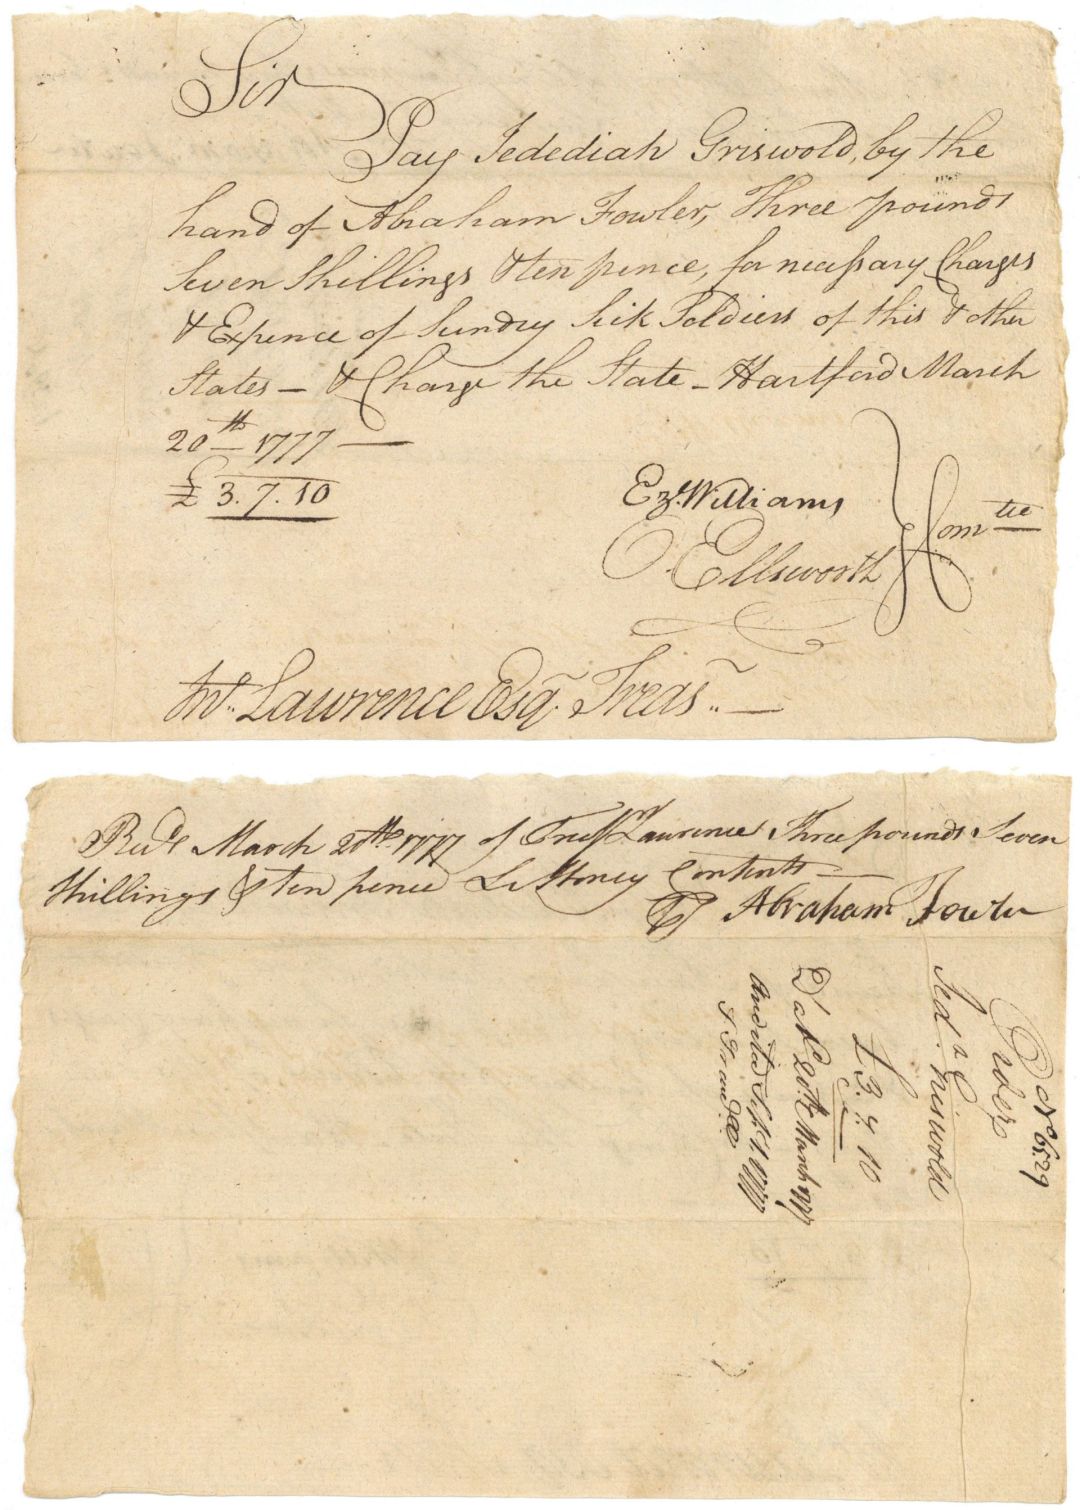 Sir
Pay Jedediah Griswold, by the
hand of Abraham Fowler, Three pounds
Seven Shillings & ten pence, for necessary Charges
& Expence of Sundry Sick Soldiers of this & other
States — & Charge the State — Hartford March
20th 1777 —
£ 3. 7. 10
Ezl. Williams
O Ellsworth
Comtee
Jno. Lawrence Esqr. Treasr. —
Recd March 20th 1777 of Treasr Lawrence Three pounds Seven
Shillings & ten pence L Money Contents —
Abraham Fowler
No 6529
Order
Jedh Griswold
£ 3. 7. 10
Dat. 20th March 1777
Audited Sept 1. 1777